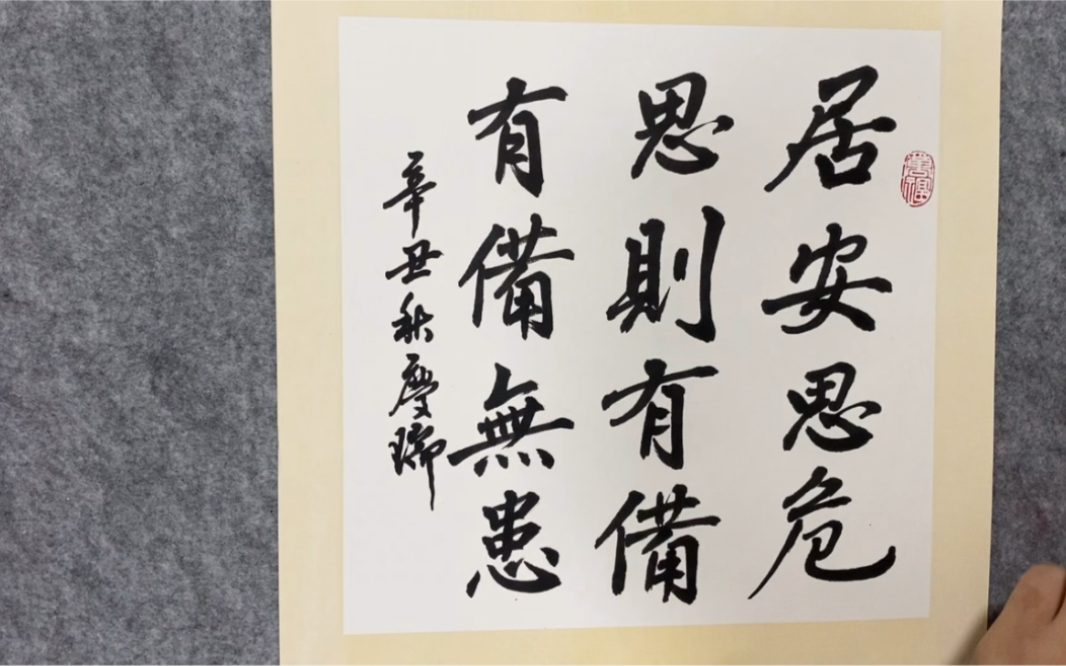 居安思危
思則有備
有備無患
辛丑秋慶瑞